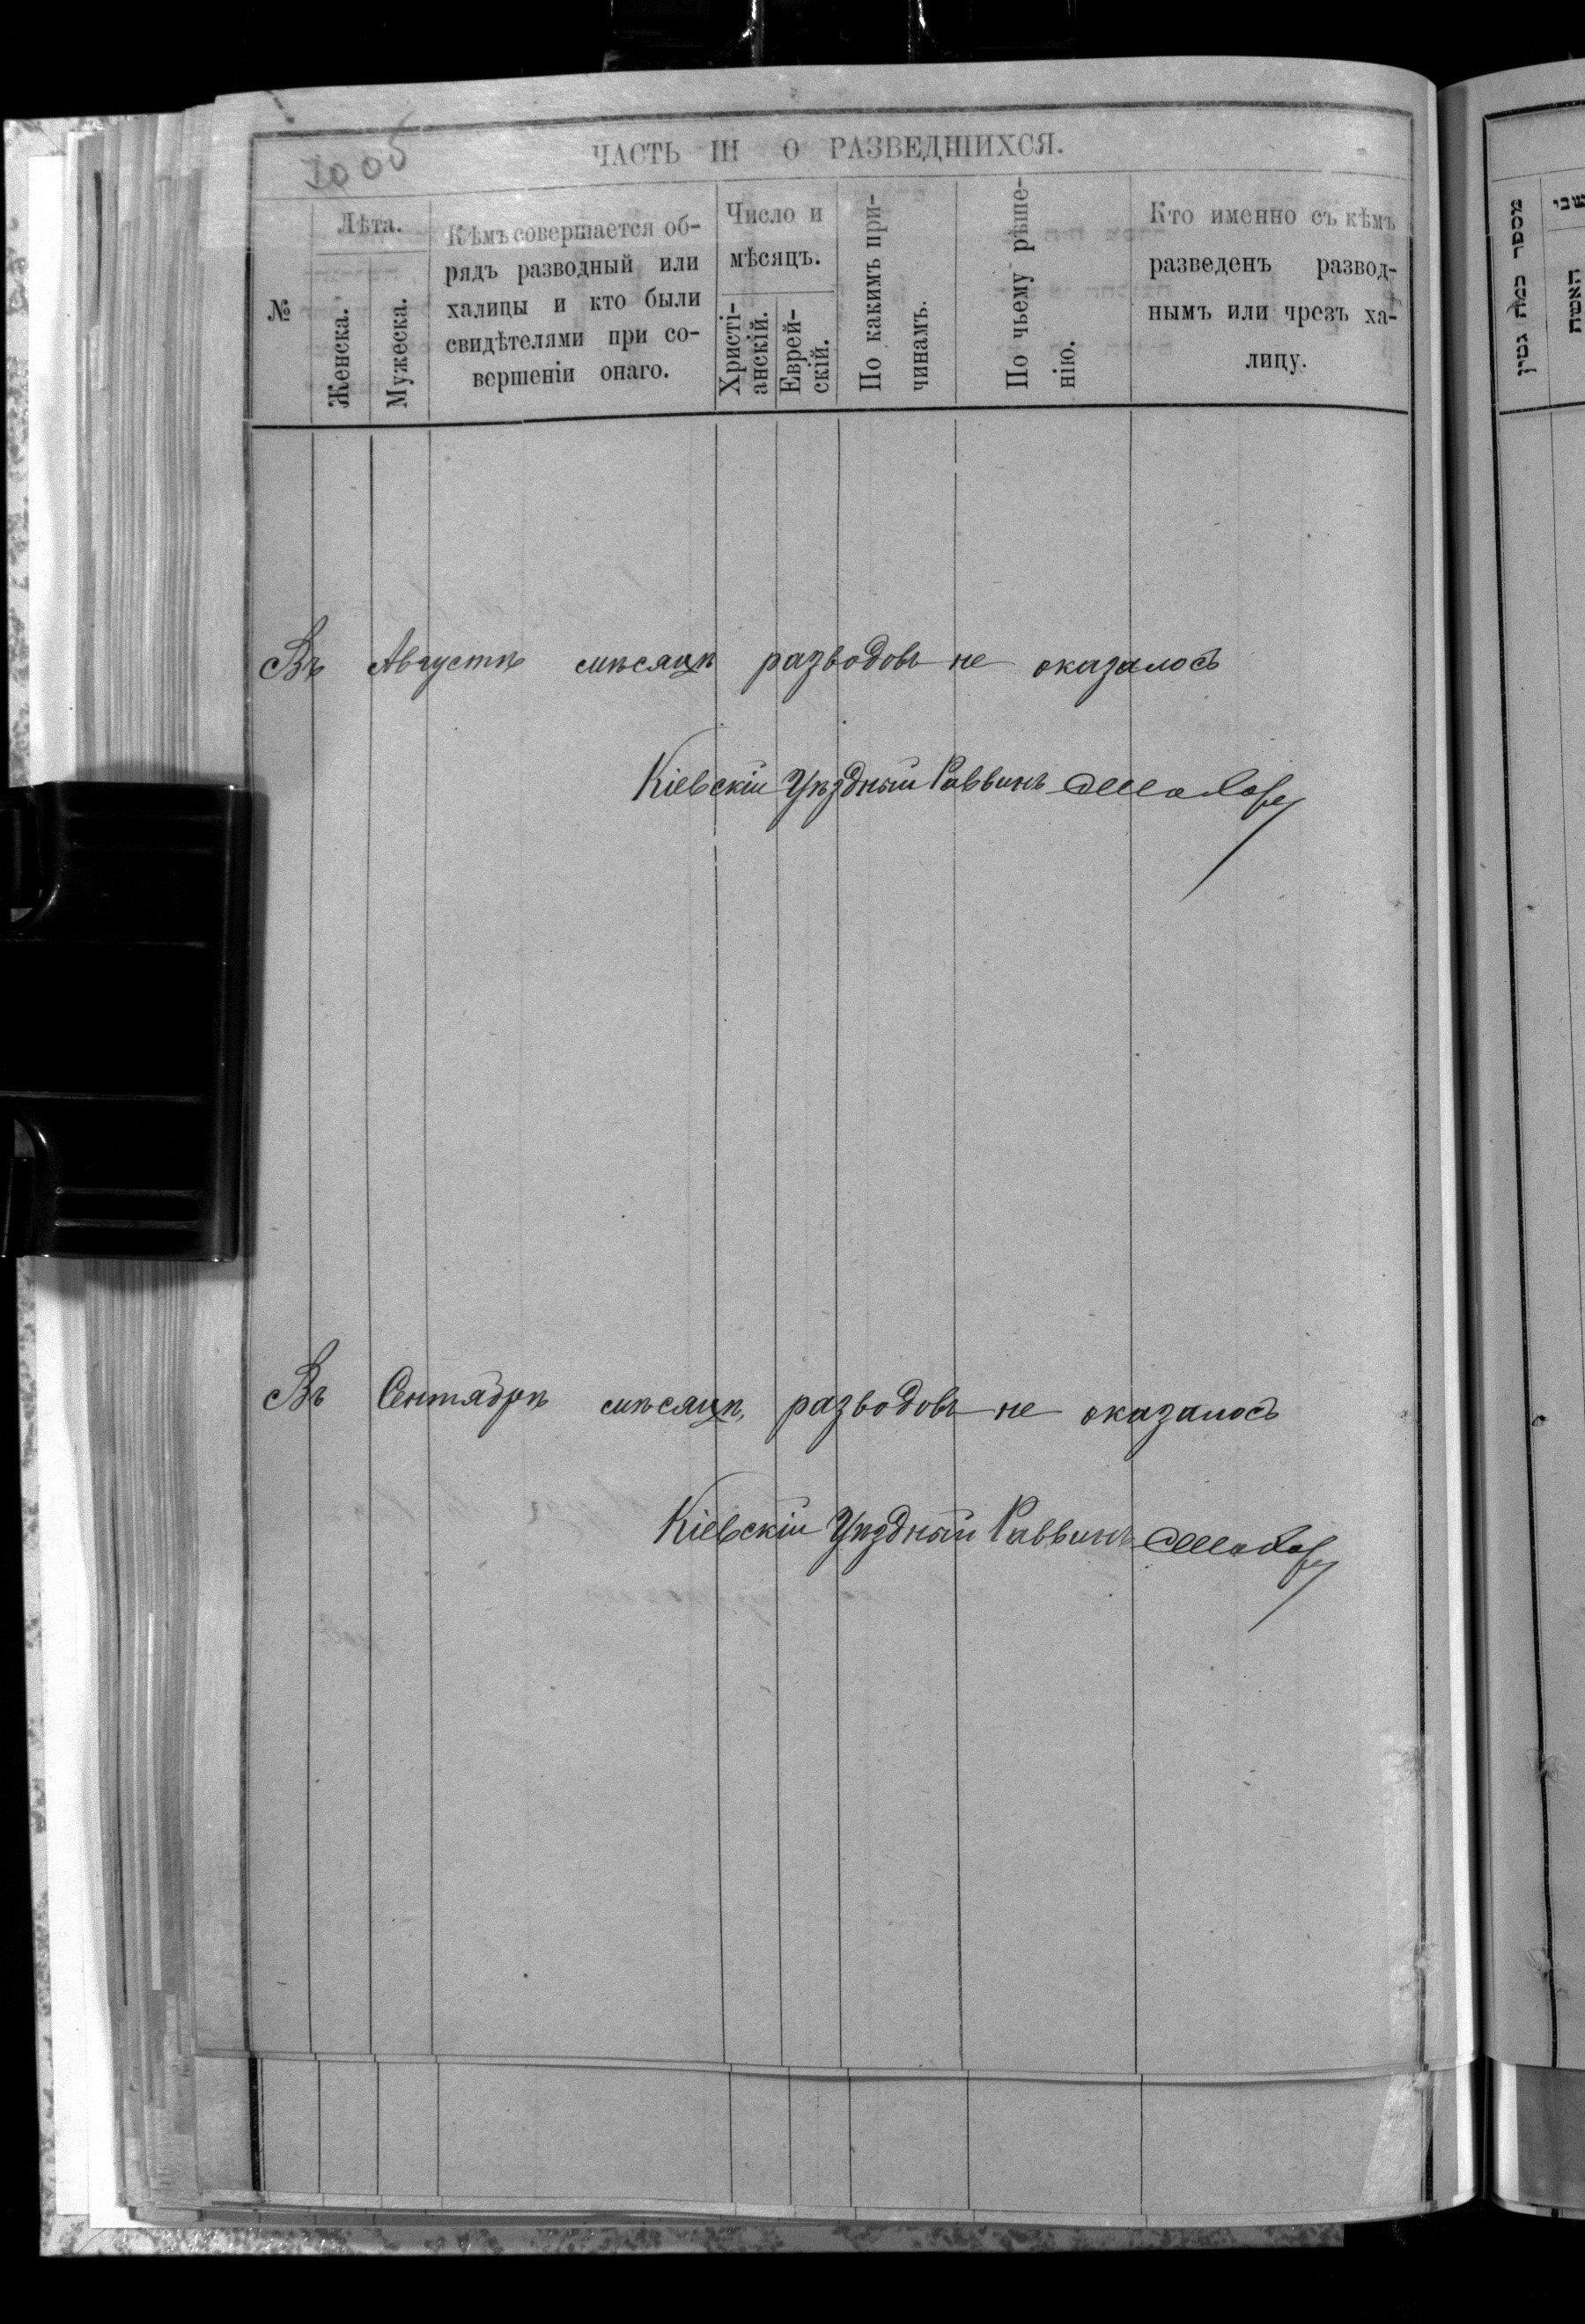 ЧАСТЬ III О РАЗВЕДШИХСЯ.
№
Лѣта.
Женска.
Мужеска.
Кѣмъ совершается об-
рядъ разводный или
халицы и кто были
свидѣтелями при со-
вершеніи онаго.
Число и
мѣсяцъ.
Христі-
анскій.
Еврей-
скій.
По какимъ при-
чинамъ.
По чьему рѣше-
нію.
Кто именно съ кѣмъ
разведенъ развод-
нымъ или чрезъ ха-
лицу.
Въ Августѣ мѣсяцѣ разводовъ не оказалось
Кіевскій Уѣздный Раввинъ
Въ Сентябрѣ мѣсяцѣ разводовъ не оказалось
Кіевскій Уѣздный Раввинъ
מספר כמה גטין
האשה